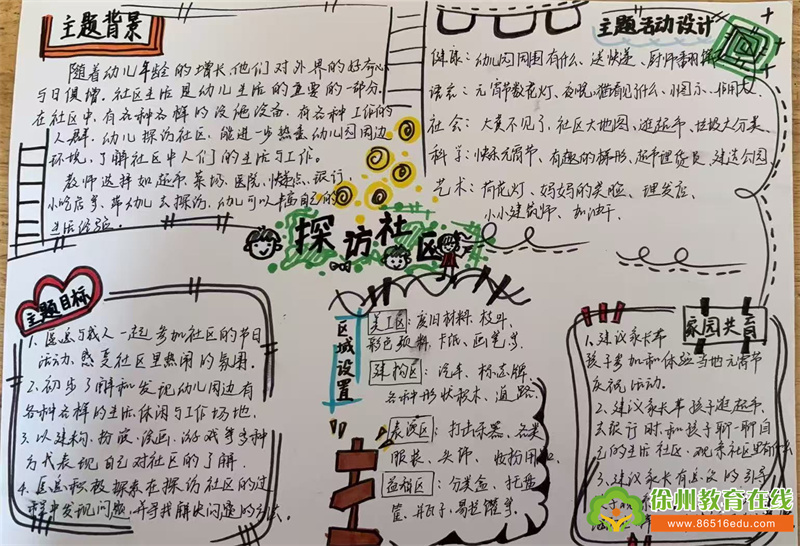 主题背景
随着幼儿年龄的增长,他们对外界的好奇心
与日俱增。社区生活是幼儿生活的重要的一部分。
在社区中,有各种各样的设施设备,有各种工作的
人群。幼儿探访社区,能进一步熟悉幼儿园周边
环境,了解社区中人们的生活与工作。
教师选择如超市、菜场、医院、快递点、银行、
小吃店等,带幼儿去探访,幼儿可以丰富自己的
生活经验。
主题活动设计
健康:幼儿园周围有什么、送快递、厨师翻锅
语言:元宵节数花灯、夜晚猫看见什么、
社会:大黄不见了、社区大地图、逛超市、垃圾大分类
科学:快乐元宵节、有趣的梯形、超市理货员、建造公园
艺术:荷花灯、妈妈的笑脸、理发店、
小小建筑师、加油干
探访社区
主题目标
1.愿意与成人一起参加社区的节日
活动,感受社区里热闹的氛围。
2.初步了解和发现幼儿园周边有
各种各样的生活、休闲与工作场地。
3.以建构、扮演、绘画、游戏等多种
方式表现自己对社区的了解。
4.愿意积极探索在探访社区的过
程中发现问题,并寻找解决问题的方法。
区域设置
美工区:废旧材料、枝叶、
彩色颜料、卡纸、画笔等
建构区:汽车、标志牌、
各种形状积木、道路
表演区:打击乐器、各类
服装、头饰、妆扮用
益智区:分类盒、托盘、
筐、井瓦子、易拉罐等
家园共育
1.建议家长带
孩子参加和体验当地元宵节
庆祝活动。
2.建议家长带孩子逛超市、
去银行时,和孩子聊一聊自
己的生活社区,观察社区里有什么
3.建议家长有意义的引导
徐州教育在线
www.86516edu.com